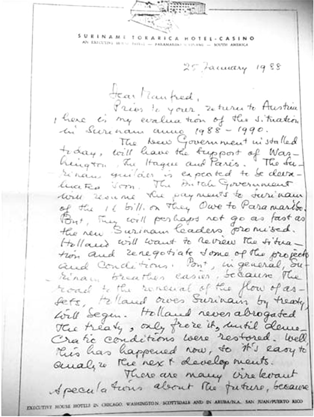 SURINAME TORARICA HOTEL-CASINO
AN EXECUTIVE HOUSE HOTEL • PARAMARIBO • SURINAM • SOUTH AMERICA
25 January 1988
Dear Manfred:
Prior to your return to Austria
here is my evaluation of the situation
in Suriname anno 1988-1990.
The new Government installed
today, will have the support of Was-
hington, The Hague and Paris. The Su-
rinam guilder is expected to be deva-
luated soon. The Dutch Government
will resume the payments to Surinam
of the 1.2 billion they owe to Paramaribo.
But, this will perhaps not go as fast as
the new Surinam leaders promised.
Holland will want to review the situa-
tion and renegotiate some of the projects
and conditions. But, in general, Su-
rinam breathes easier, because the
road to the renewal of the flow of as-
sets, Holland owes Surinam by treaty,
will begin. Holland never abrogated
the treaty, only froze it, until demo-
cratic conditions were restored. Well
this has happened now, so it's easy to
analyze the next developments.
There are many irrelevant
speculations about the future, because
EXECUTIVE HOUSE HOTELS IN CHICAGO, WASHINGTON, SCOTTSDALE AND IN ARUBA/N.A. SAN JUAN/PUERTO RICO